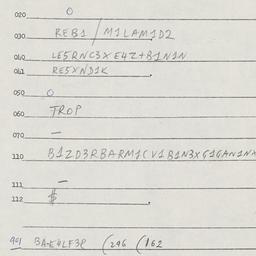 020 0
030 REB1/M1LAM1D2
040 LE5RNC3XE4Z+B1N1N
041 RE5XND1K
050 0
060 TROP
070 —
110 B1ZD3RBARM1CV1B1N3XG1GAN1NA
111 —
112 $
901 BAE4LF3P (296 (162